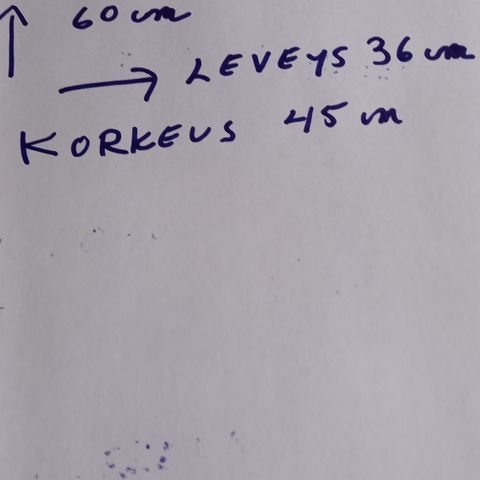 60 cm
LEVEYS 36 cm
KORKEUS 45 cm